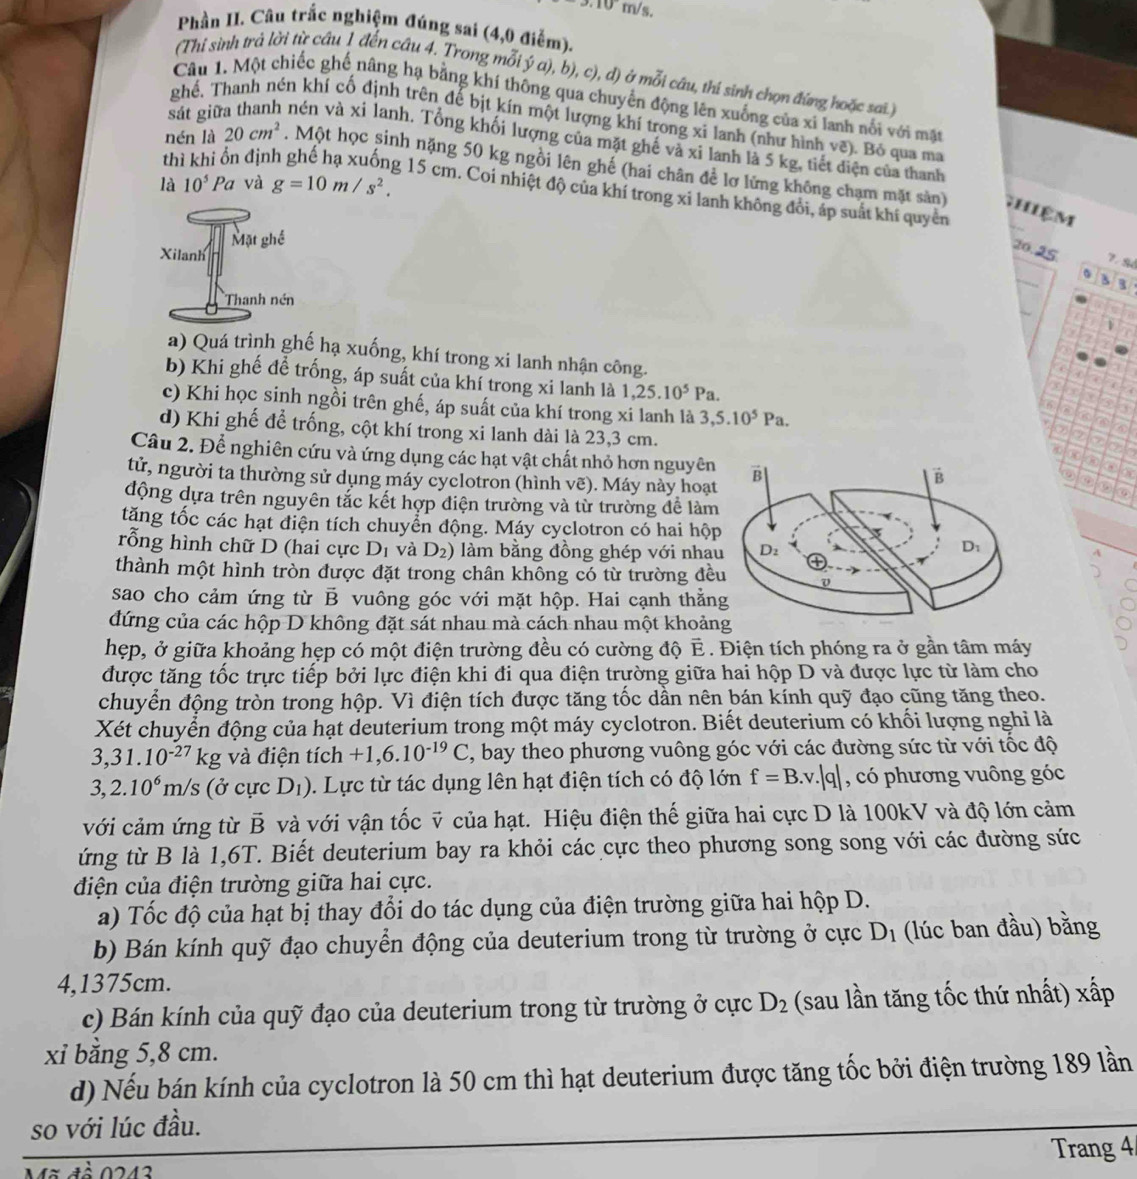 3.10 m/s.
Phần II. Câu trắc nghiệm đúng sai (4,0 điểm).
(Thí sinh trả lời từ câu 1 đến câu 4. Trong mỗi ý a), b), c), d) ở mỗi câu, thí sinh chọn đúng hoặc sai.)
Câu 1. Một chiếc ghế nâng hạ bằng khí thông qua chuyển động lên xuống của xi lanh nối với mặt
ghế. Thanh nén khí cố định trên đế bịt kín một lượng khí trong xi lanh (như hình vẽ). Bỏ qua ma
sát giữa thanh nén và xi lanh. Tổng khối lượng của mặt ghế và xi lanh là 5 kg, tiết diện của thanh
nén là 20 cm². Một học sinh nặng 50 kg ngồi lên ghế (hai chân để lơ lửng không chạm mặt sàn)
thì khi ổn định ghế hạ xuống 15 cm. Coi nhiệt độ của khí trong xi lanh không đổi, áp suất khí quyển
là 10⁵ Pa và g = 10 m/s².
Mặt ghế
Xilanh
Thanh nén
a) Quá trình ghế hạ xuống, khí trong xi lanh nhận công.
b) Khi ghế để trống, áp suất của khí trong xi lanh là 1,25.10⁵ Pa.
c) Khi học sinh ngồi trên ghế, áp suất của khí trong xi lanh là 3,5.10⁵ Pa.
d) Khi ghế để trống, cột khí trong xi lanh dài là 23,3 cm.
Câu 2. Để nghiên cứu và ứng dụng các hạt vật chất nhỏ hơn nguyên
tử, người ta thường sử dụng máy cyclotron (hình vẽ). Máy này hoạt
động dựa trên nguyên tắc kết hợp điện trường và từ trường để làm
tăng tốc các hạt điện tích chuyển động. Máy cyclotron có hai hộp
rỗng hình chữ D (hai cực D₁ và D₂) làm bằng đồng ghép với nhau
thành một hình tròn được đặt trong chân không có từ trường đều
sao cho cảm ứng từ B⃗ vuông góc với mặt hộp. Hai cạnh thẳng
đứng của các hộp D không đặt sát nhau mà cách nhau một khoảng
B⃗
B⃗
D₂
D₁
+
v
hẹp, ở giữa khoảng hẹp có một điện trường đều có cường độ E⃗. Điện tích phóng ra ở gần tâm máy
được tăng tốc trực tiếp bởi lực điện khi đi qua điện trường giữa hai hộp D và được lực từ làm cho
chuyển động tròn trong hộp. Vì điện tích được tăng tốc dần nên bán kính quỹ đạo cũng tăng theo.
Xét chuyển động của hạt deuterium trong một máy cyclotron. Biết deuterium có khối lượng nghỉ là
3,31.10⁻²⁷ kg và điện tích +1,6.10⁻¹⁹ C, bay theo phương vuông góc với các đường sức từ với tốc độ
3,2.10⁶ m/s (ở cực D₁). Lực từ tác dụng lên hạt điện tích có độ lớn f = B.v.|q|, có phương vuông góc
với cảm ứng từ B⃗ và với vận tốc v⃗ của hạt. Hiệu điện thế giữa hai cực D là 100kV và độ lớn cảm
ứng từ B là 1,6T. Biết deuterium bay ra khỏi các cực theo phương song song với các đường sức
điện của điện trường giữa hai cực.
a) Tốc độ của hạt bị thay đổi do tác dụng của điện trường giữa hai hộp D.
b) Bán kính quỹ đạo chuyển động của deuterium trong từ trường ở cực D₁ (lúc ban đầu) bằng
4,1375cm.
c) Bán kính của quỹ đạo của deuterium trong từ trường ở cực D₂ (sau lần tăng tốc thứ nhất) xấp
xỉ bằng 5,8 cm.
d) Nếu bán kính của cyclotron là 50 cm thì hạt deuterium được tăng tốc bởi điện trường 189 lần
so với lúc đầu.
Trang 4/
Mã đề 0243